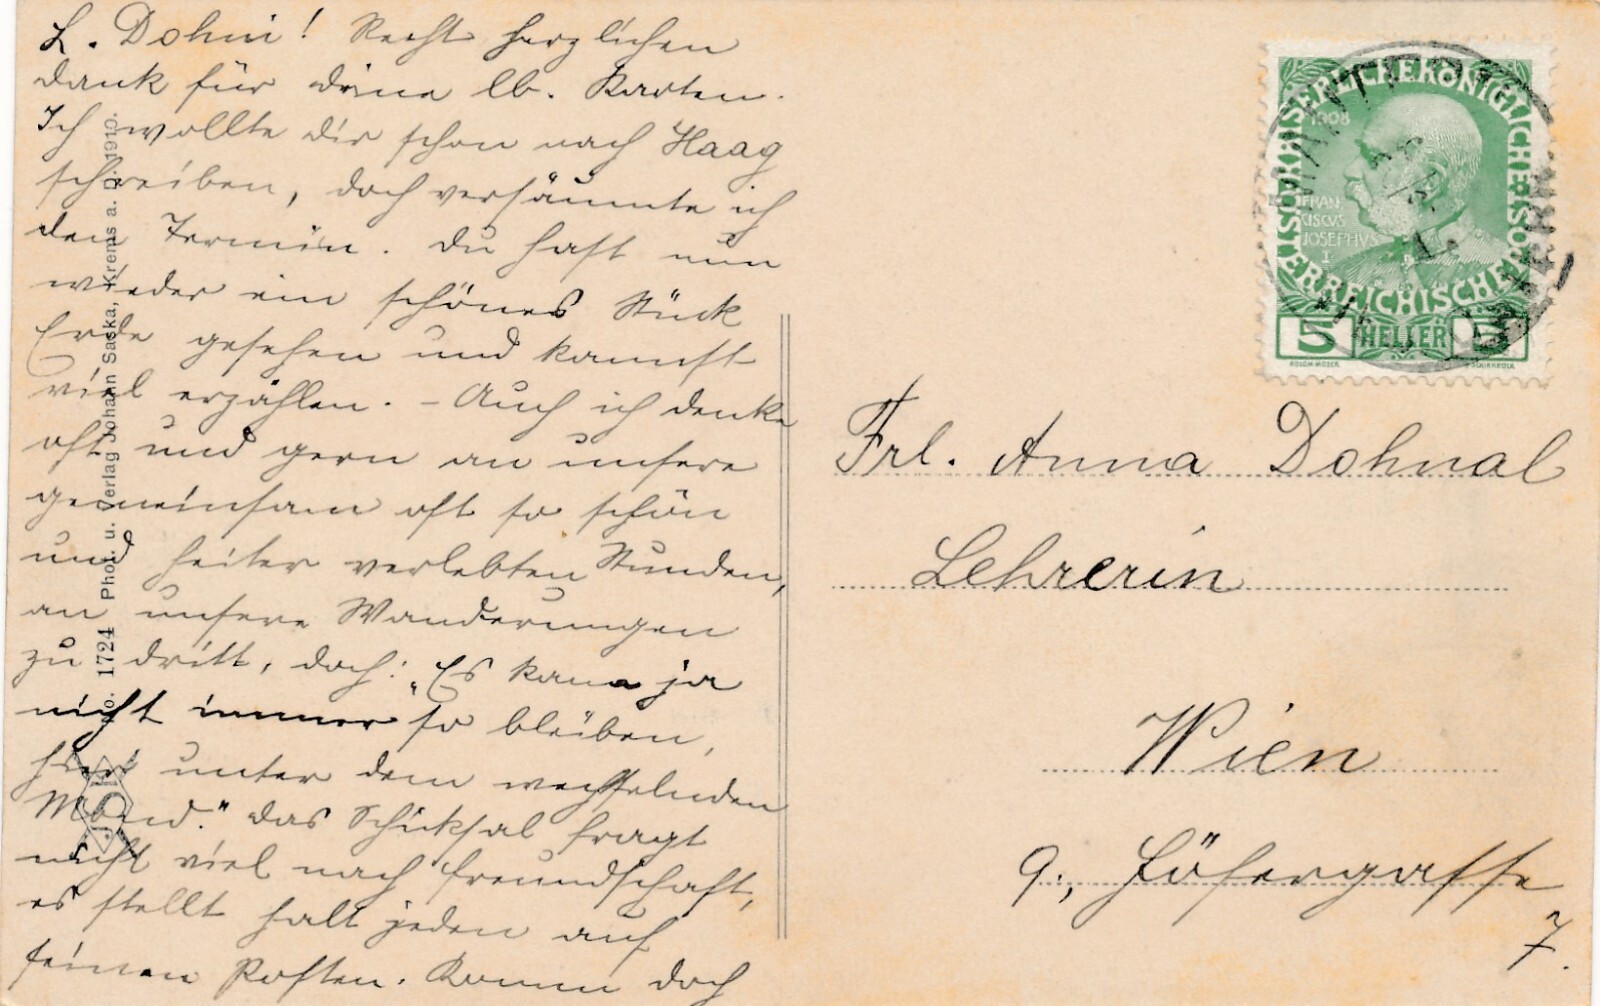 L. Dohni! Recht herzlichen
Dank für deine lb. Karten.
Ich wollte dir schon nach Haag
schreiben, doch versäumte ich
den Termin. Du hast nun
wieder ein schönes Stück
Erde gesehen und kannst
viel erzählen. – Auch ich denke
oft und gern an unsere
gemeinsam oft so schön
und heiter verlebten Stunden,
an unsere Wanderungen
zu dritt, doch: „Es kann ja
nicht immer so bleiben,
hier unter dem wechselnden
Mond." Das Schicksal fragt
nicht viel nach Freundschaft,
es stellt halt jeden auf
seinen Posten. Komm doch
No. 1724 Phot. u. Verlag Johann Saska, Krems a. D. 1910.
JSK
KAISERLICHEKÖNIGLICHE ÖSTERREICHISCHE POST
1908
FRAN
CISCVS
JOSEPHVS
I
5 HELLER 5
KOLOM. MOSER.
F. SCHIRNBÖCK
Frl. Anna Dohnal
Lehrerin
Wien
9., Hösergasse
7.